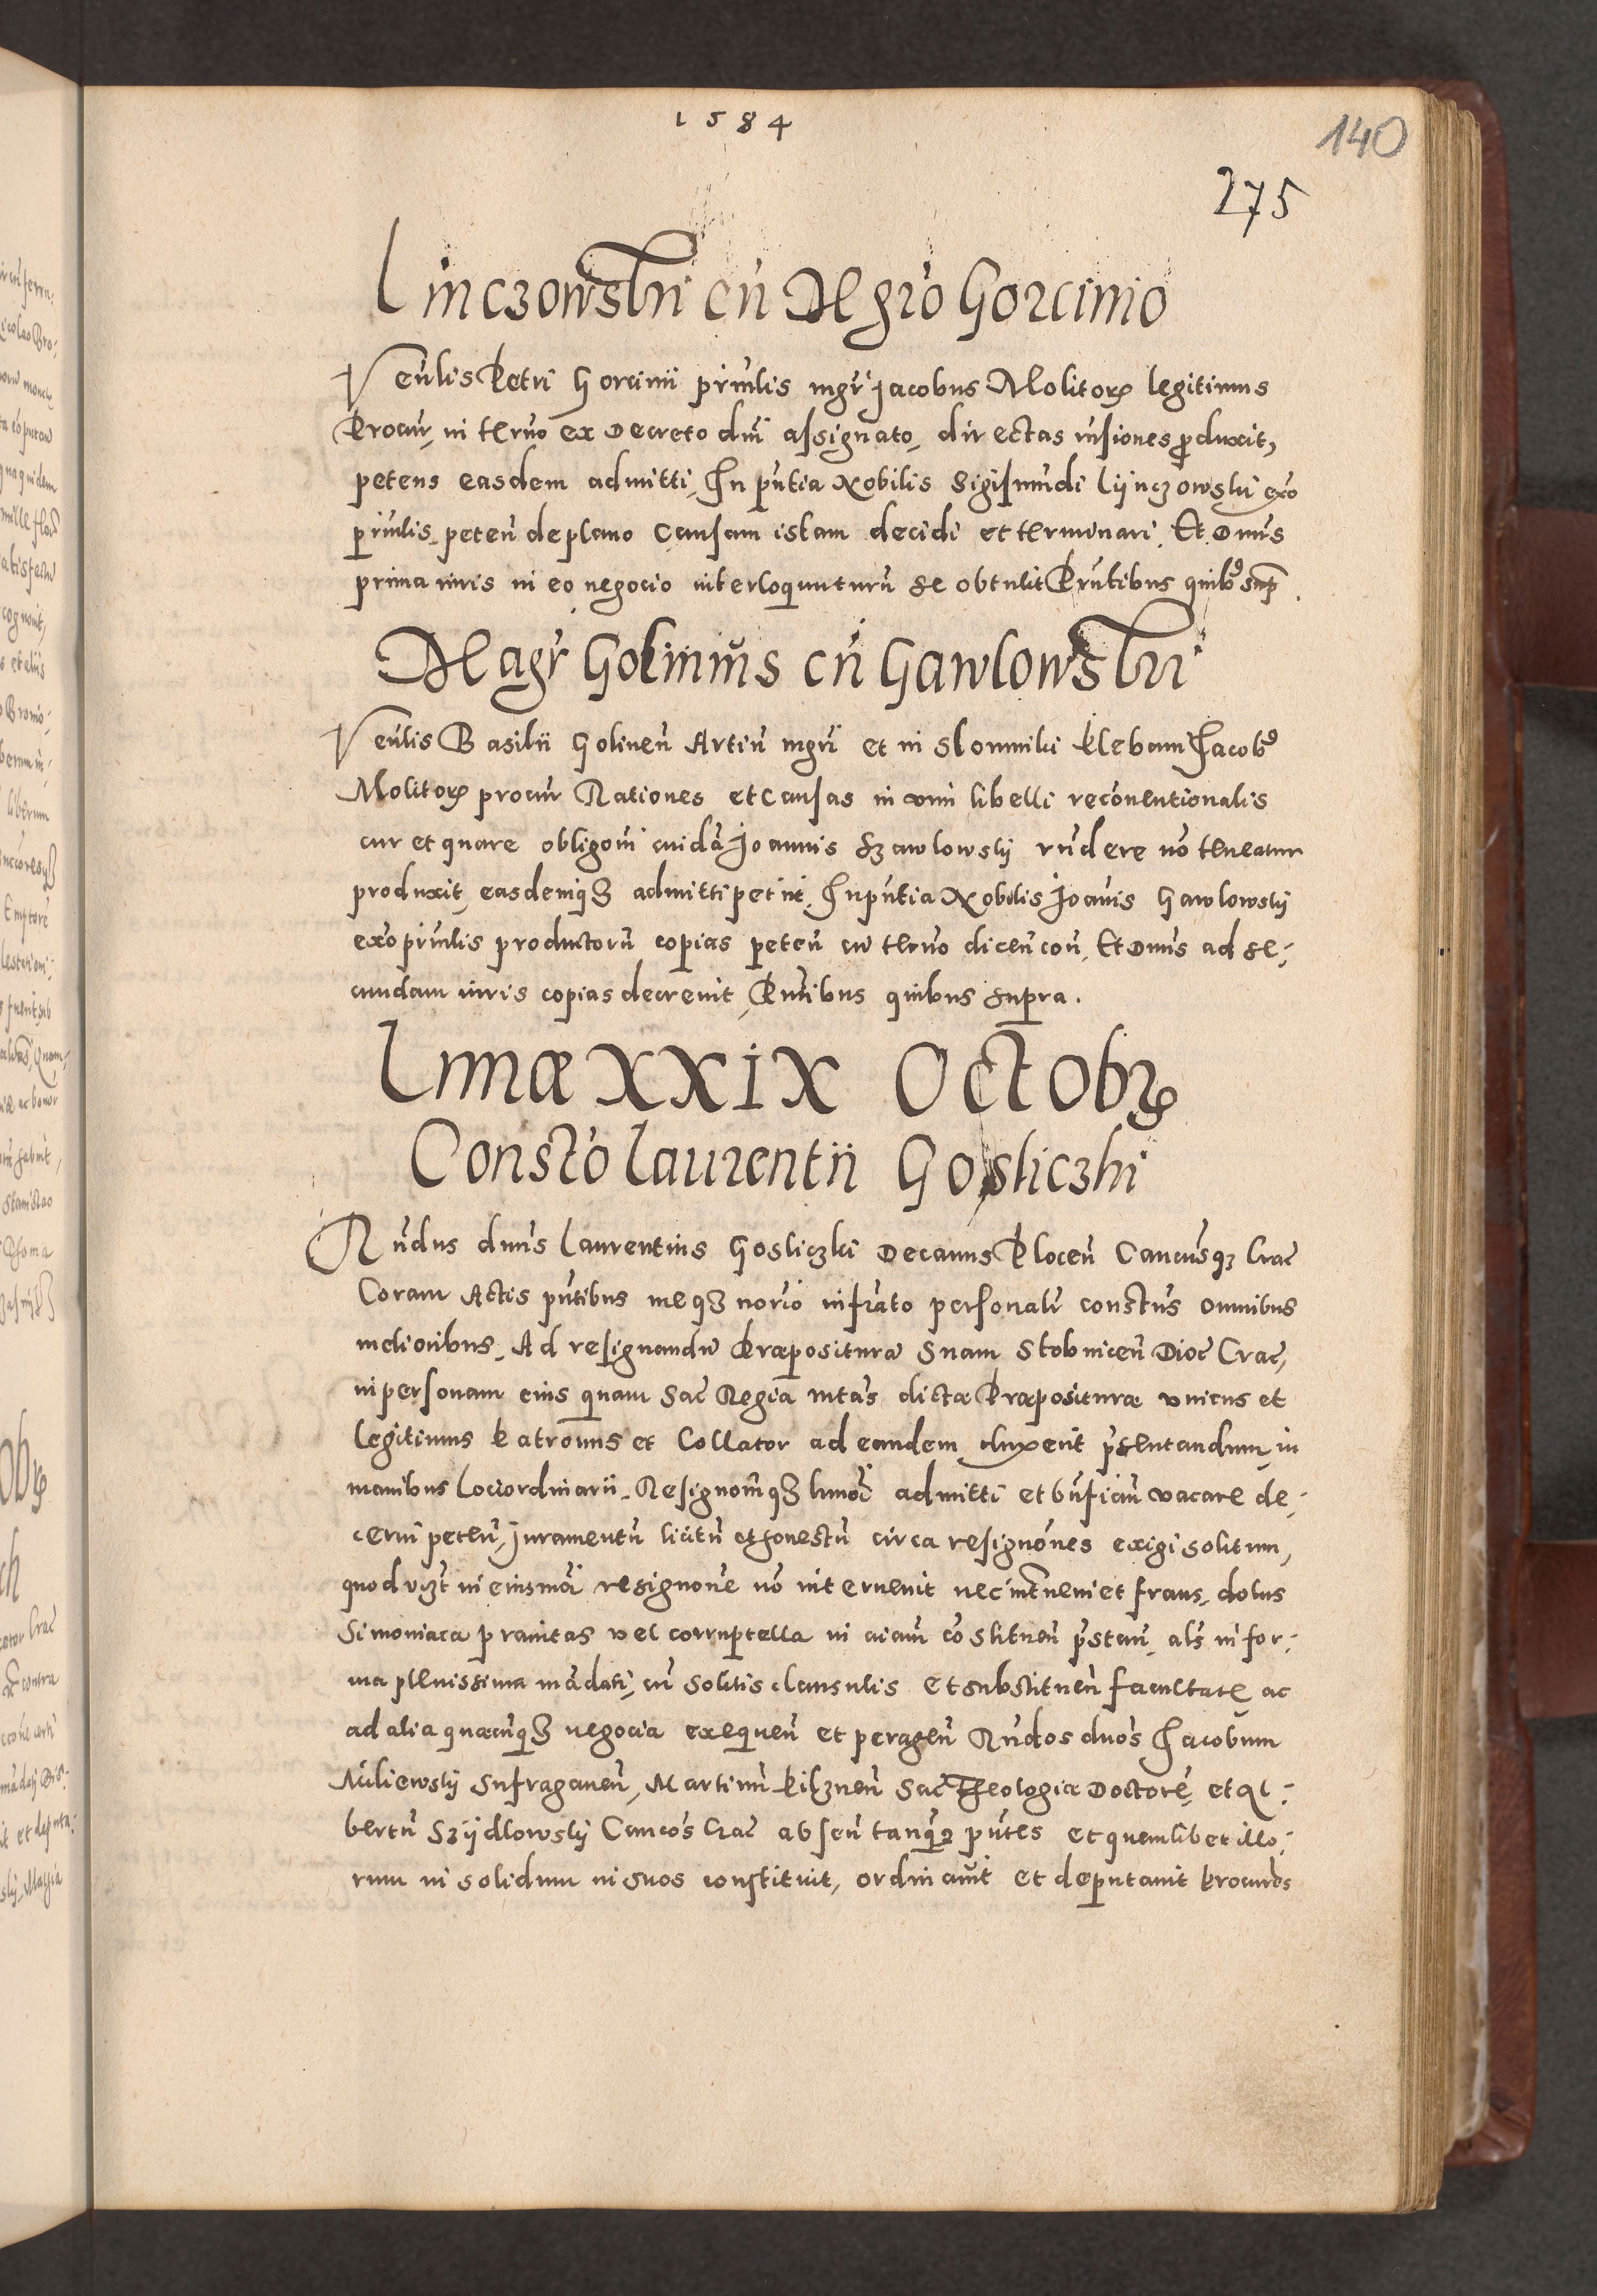 1584
140
275
Linczowski cũ Mgrõ Gorcinio
Venlis Petri Gorcinii prinlis mgri Jacobus Molitoris legitimus
Procur, in termo ex Decreto dnĩ assignato, directas visiones produxit,
petens easdem admitti, In pntia Nobilis Sigismundi Lijnczowski exo
prinlis, peteñ de plano causam istam decidi et terminari. Et Dnus
prima iuris in eo negocio interloquuturũ se obtulit Pruntibus quibus sup.
Magr Golinius cũ Gawlowski
Venlis Basilii Golineñ Artiũ mgri et in Slomniki Plebani Jacobus
Molitoris procur Rationes et causas in vim libelli reconventionalis
cur et quare obligoni cuidã Joannis Gawlowsky rñdere nõ teneatur
produxit, easdemque admitti petiit, In pñtia Nobilis Joãnis Gawlowsky
exo prinlis productorũ copias peteñ cũ termo diceñ coñ, Et Dnus ad se-
cundam iuris copias decrevit, Pñtibus quibus supra.
Lunæ XXIX Octobris
Constõ Laurentii Gosliczki
Rñdus dnũs Laurentius Gosliczki Decanus Ploceñ Cancusque Crac
Coram Actis pñtibus meque norio infrato personalr constus omnibus
melioribus, Ad resignandũ Præposituram Suam Stobniceñ Dioc Crac,
in personam eius quam Sac Regia mtas dictæ Præposituræ unicus et
legitimus Patronus et Collator ad eandem duxerit præsentandum, in
manibus loci ordinarii, Resignonemque hmoi admitti et bñficiũ vacare de-
cerni peteñ, Juramentũ licitũ et honestũ circa resignones exigi solitum,
quod vizt in eiusmoi resignone nõ intervenit nec interveniet fraus, dolus
Simoniaca pravitas vel corruptella in aiam cõstitueñ præstañ, als in for-
ma plenissima mãdati, cũ solitis clausulis et substitueñ facultate ac
ad alia quæcũque negocia exequeñ et perageñ Rñdos dños Jacobum
Miliewsky Suffraganeũ, Martinũ Pilzneñ Sac Theologiæ Doctorẽ, et Al-
bertũ Szydlowsky Cancos Crac absen tanque pñtes et quemlibet illo-
rum in solidum in suos constituit, ordinavit et deputavit Procures